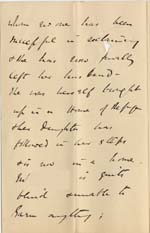 when no one has been
successful in reclaiming
& he has now finally
left his husband -
He was herself brought
up in a Home of the
& her Daughter has
followed in her steps
& is now in a home.
is quite
blind & unable to
earn anything;